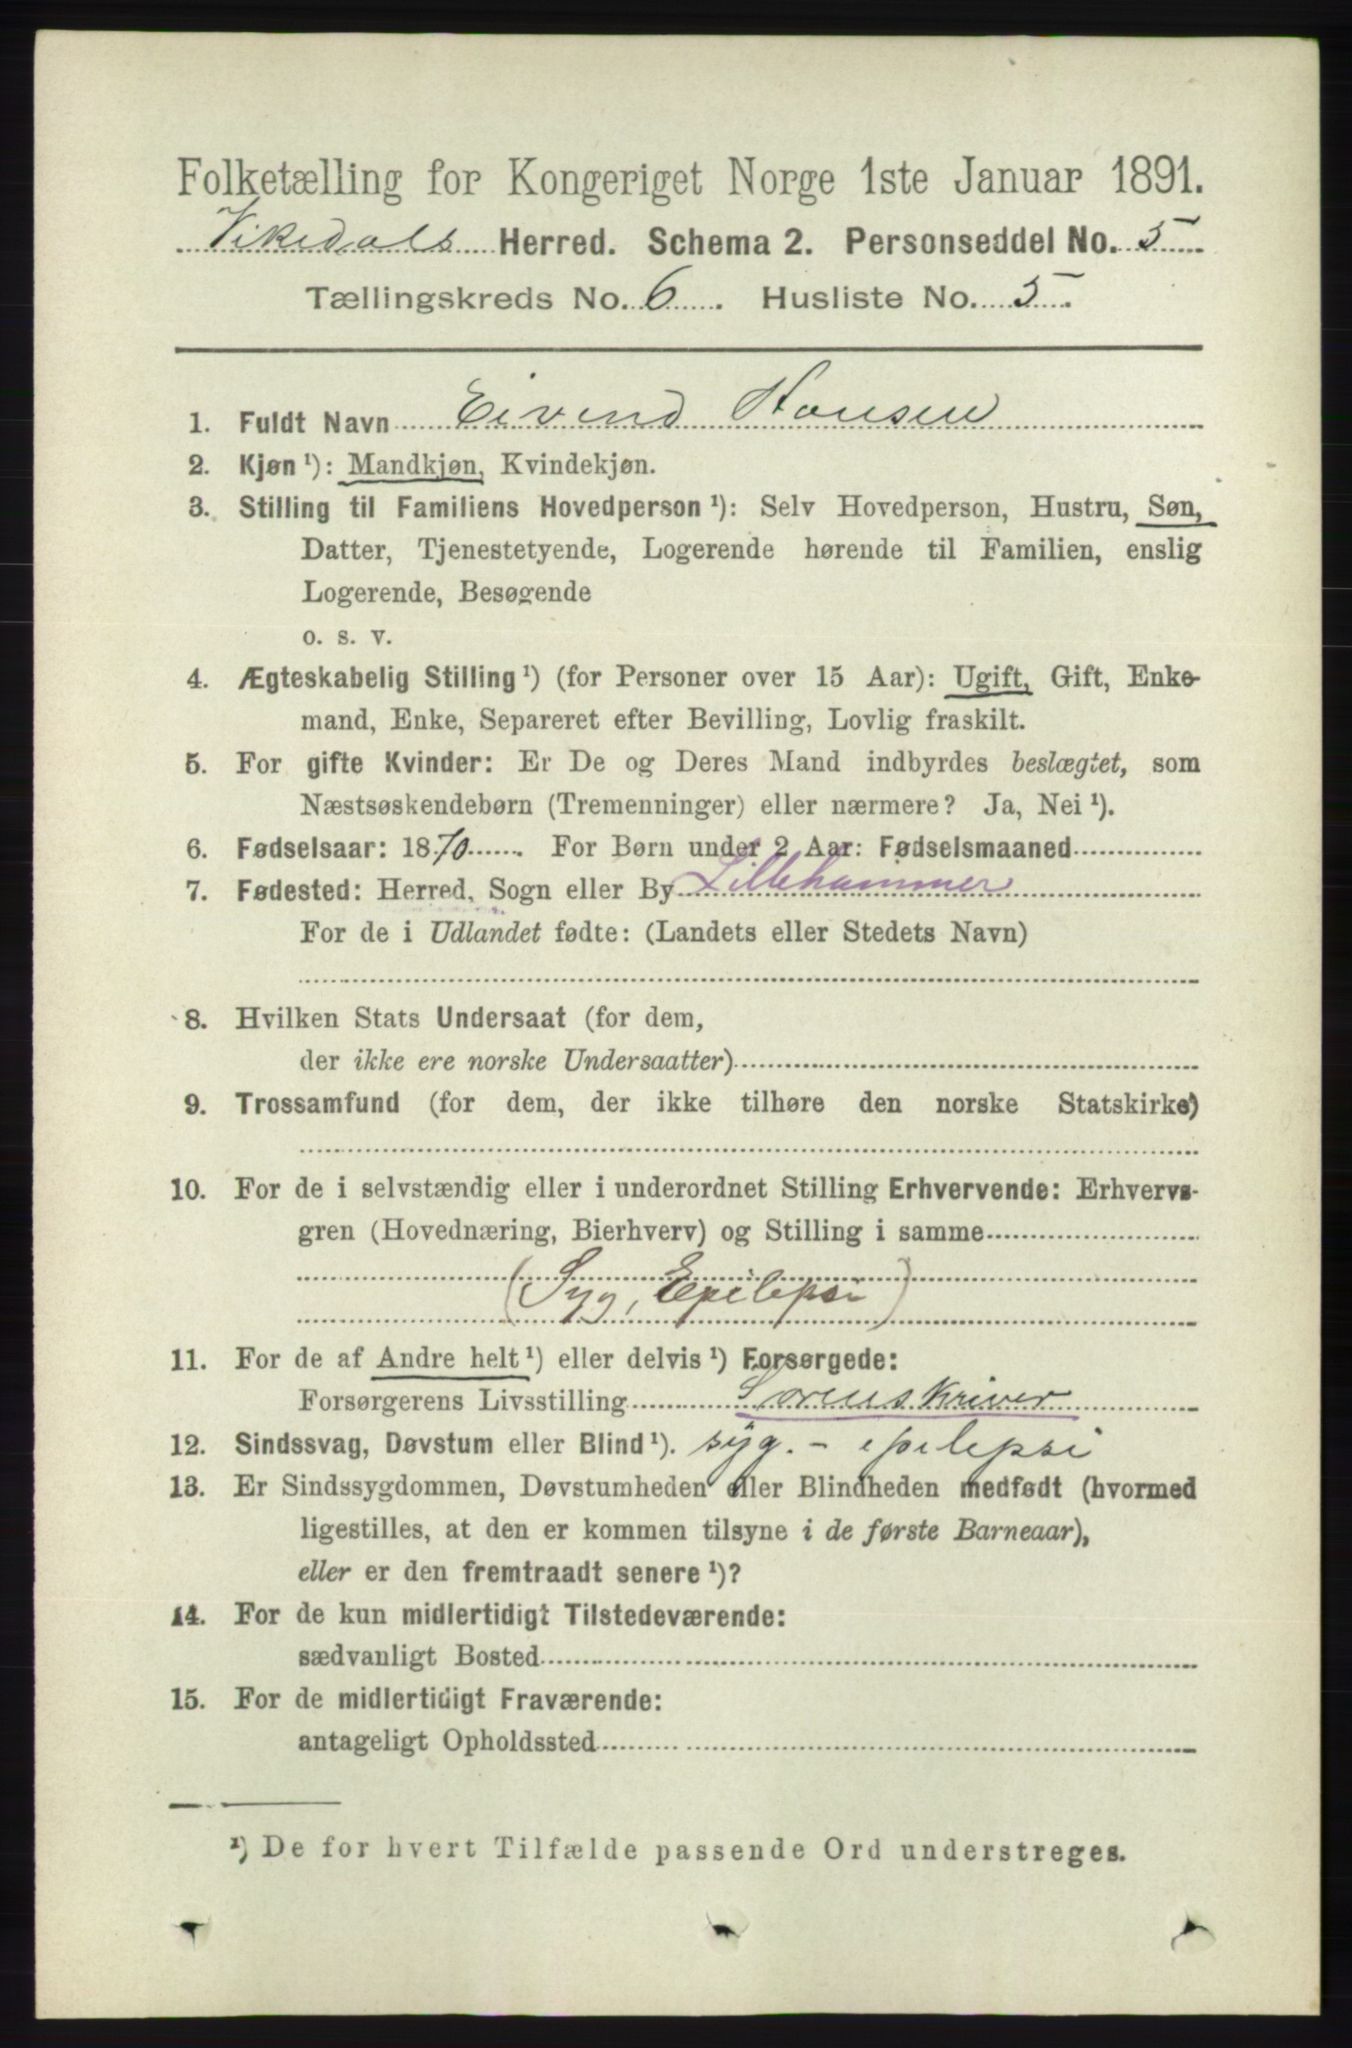 Folketælling for Kongeriget Norge 1ste Januar 1891.
Vikedals Herred. Schema 2. Personseddel No. 5
Tællingskreds No. 6. Husliste No. 5.
1. Fuldt Navn Eivend Hansen
2. Kjøn ¹): Mandkjøn, Kvindekjøn.
3. Stilling til Familiens Hovedperson ¹): Selv Hovedperson, Hustru, Søn,
Datter, Tjenestetyende, Logerende hørende til Familien, enslig
Logerende, Besøgende
o. s. v.
4. Ægteskabelig Stilling ¹) (for Personer over 15 Aar): Ugift, Gift, Enke-
mand, Enke, Separeret efter Bevilling, Lovlig fraskilt.
5. For gifte Kvinder: Er De og Deres Mand indbyrdes beslægtet, som
Næstsøskendebørn (Tremenninger) eller nærmere? Ja, Nei ¹).
6. Fødselsaar: 1870. For Børn under 2 Aar: Fødselsmaaned
7. Fødested: Herred, Sogn eller By Lillehammer
For de i Udlandet fødte: (Landets eller Stedets Navn)
8. Hvilken Stats Undersaat (for dem,
der ikke ere norske Undersaatter)
9. Trossamfund (for dem, der ikke tilhøre den norske Statskirke)
10. For de i selvstændig eller i underordnet Stilling Erhvervende: Erhvervs-
gren (Hovednæring, Bierhverv) og Stilling i samme
(Syg, Epilepsi)
11. For de af Andre helt ¹) eller delvis ¹) Forsørgede:
Forsørgerens Livsstilling Sorenskriver
12. Sindssvag, Døvstum eller Blind ¹). syg. - epilepsi
13. Er Sindssygdommen, Døvstumheden eller Blindheden medfødt (hvormed
ligestilles, at den er kommen tilsyne i de første Barneaar),
eller er den fremtraadt senere ¹)?
14. For de kun midlertidigt Tilstedeværende:
sædvanligt Bosted
15. For de midlertidigt Fraværende:
antageligt Opholdssted
¹) De for hvert Tilfælde passende Ord understreges.